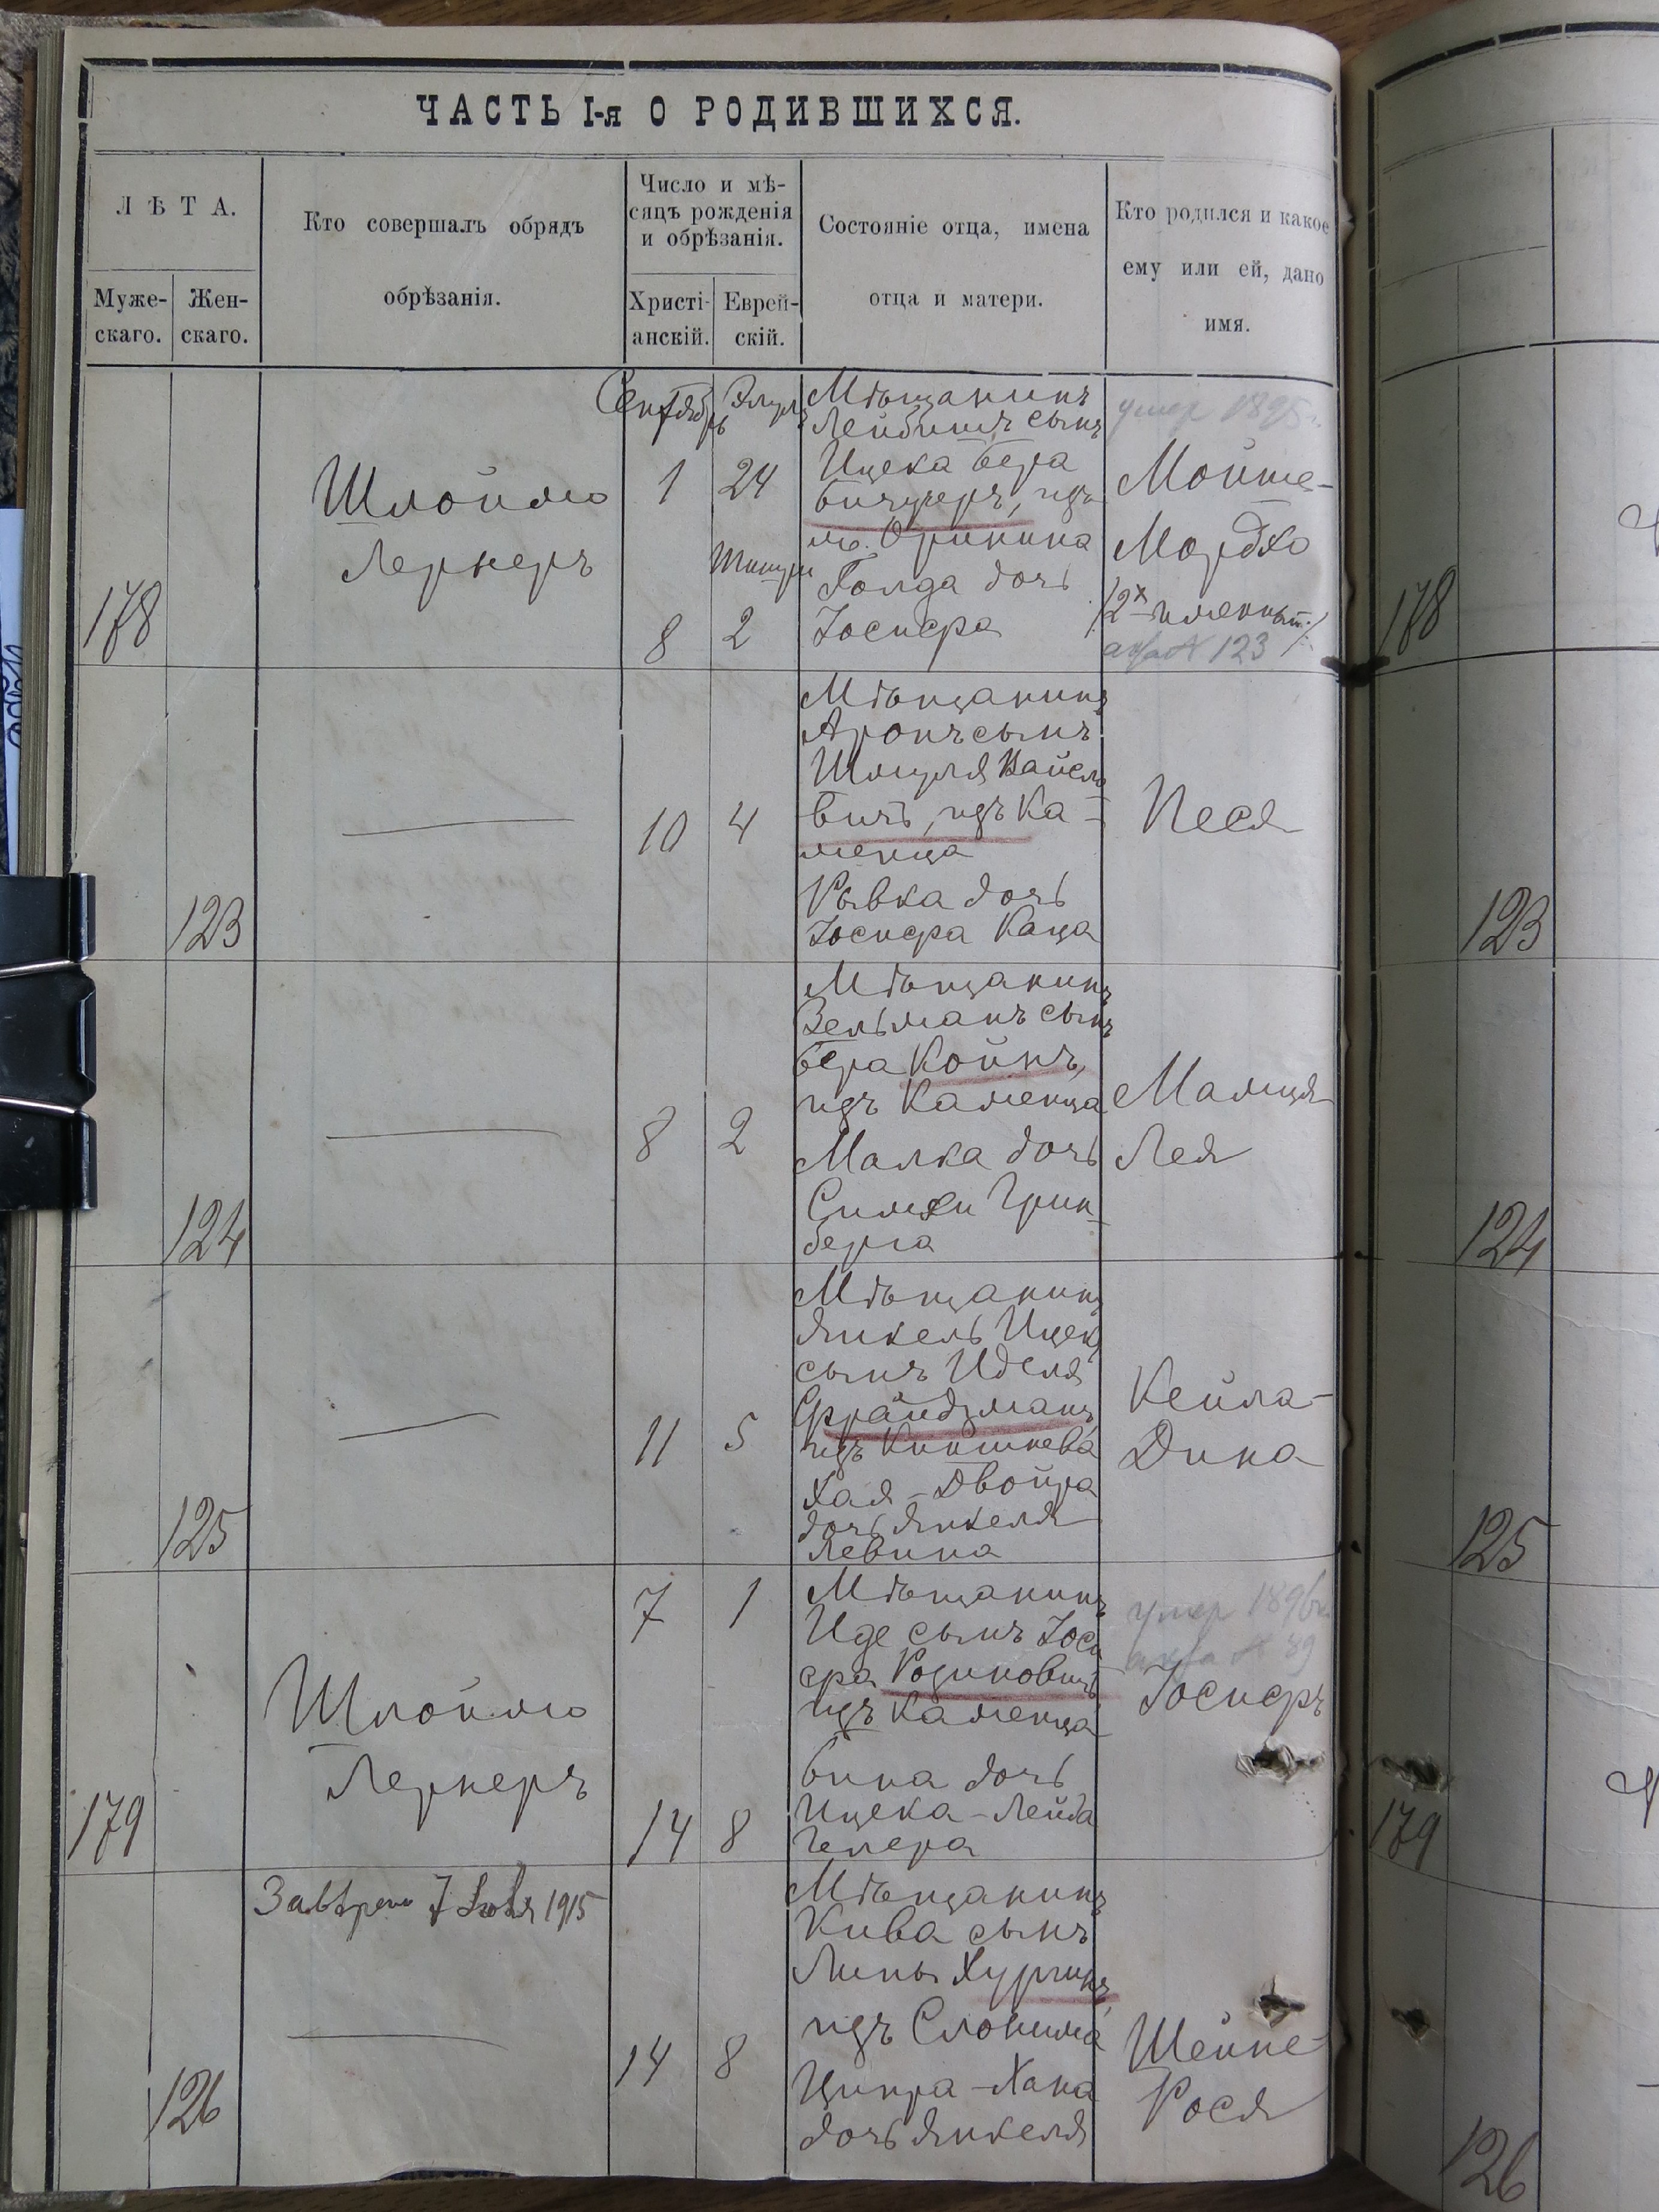 ЧАСТЬ I-я О РОДИВШИХСЯ.
ЛѢТА.
Муже-
скаго.
Жен-
скаго.
Кто совершалъ обрядъ
обрѣзанія.
Число и мѣ-
сяцъ рожденія
и обрѣзанія.
Христі-
анскій.
Еврей-
скій.
Состояніе отца, имена
отца и матери.
Кто родился и какое
ему или ей, дано
имя.
178
Шлоймо
Лернеръ
Сентябрь
1
8
Элулъ
24
Тишри
2
Мѣщанинъ
Лейбишъ сынъ
Ицека Бера
изъ
м. Оринина
Голда дочь
Іосифа
умер 1895 г.
Мойше-
Мордко
/2х именный/
акт № 123
178
123
10
4
Мѣщанинъ
Аронъ сынъ
Шмуля Вайсло
вичъ, изъ Ка-
менца
Рывка дочь
Іосифа Каца
Песя
123
124
8
2
Мѣщанинъ
Зельманъ сынъ
Бера Койнъ,
изъ Каменца
Малка дочь
Симхи Грин-
берга
Малця
Лея
124
125
11
5
Мѣщанинъ
Янкель Ицекъ
сынъ Иделя
Фрайдзманъ
изъ Кишинева
Хая-Двойра
дочь Янкеля
Левина
Кейла-
Дина
125
179
Шлоймо
Лернеръ
7
14
1
8
Мѣщанинъ
Иде сынъ Іоси
фа Розиновичъ
изъ Каменца
Бина дочь
Ицека-Лейба
умер 1896 г.
акт № 89
Іосифъ
179
126
7 1915
14
8
Мѣщанинъ
Кива сынъ
Липы Хургинъ,
изъ Слонима
Ципра-Хана
дочь Янкеля
Шейне-
Рося
126